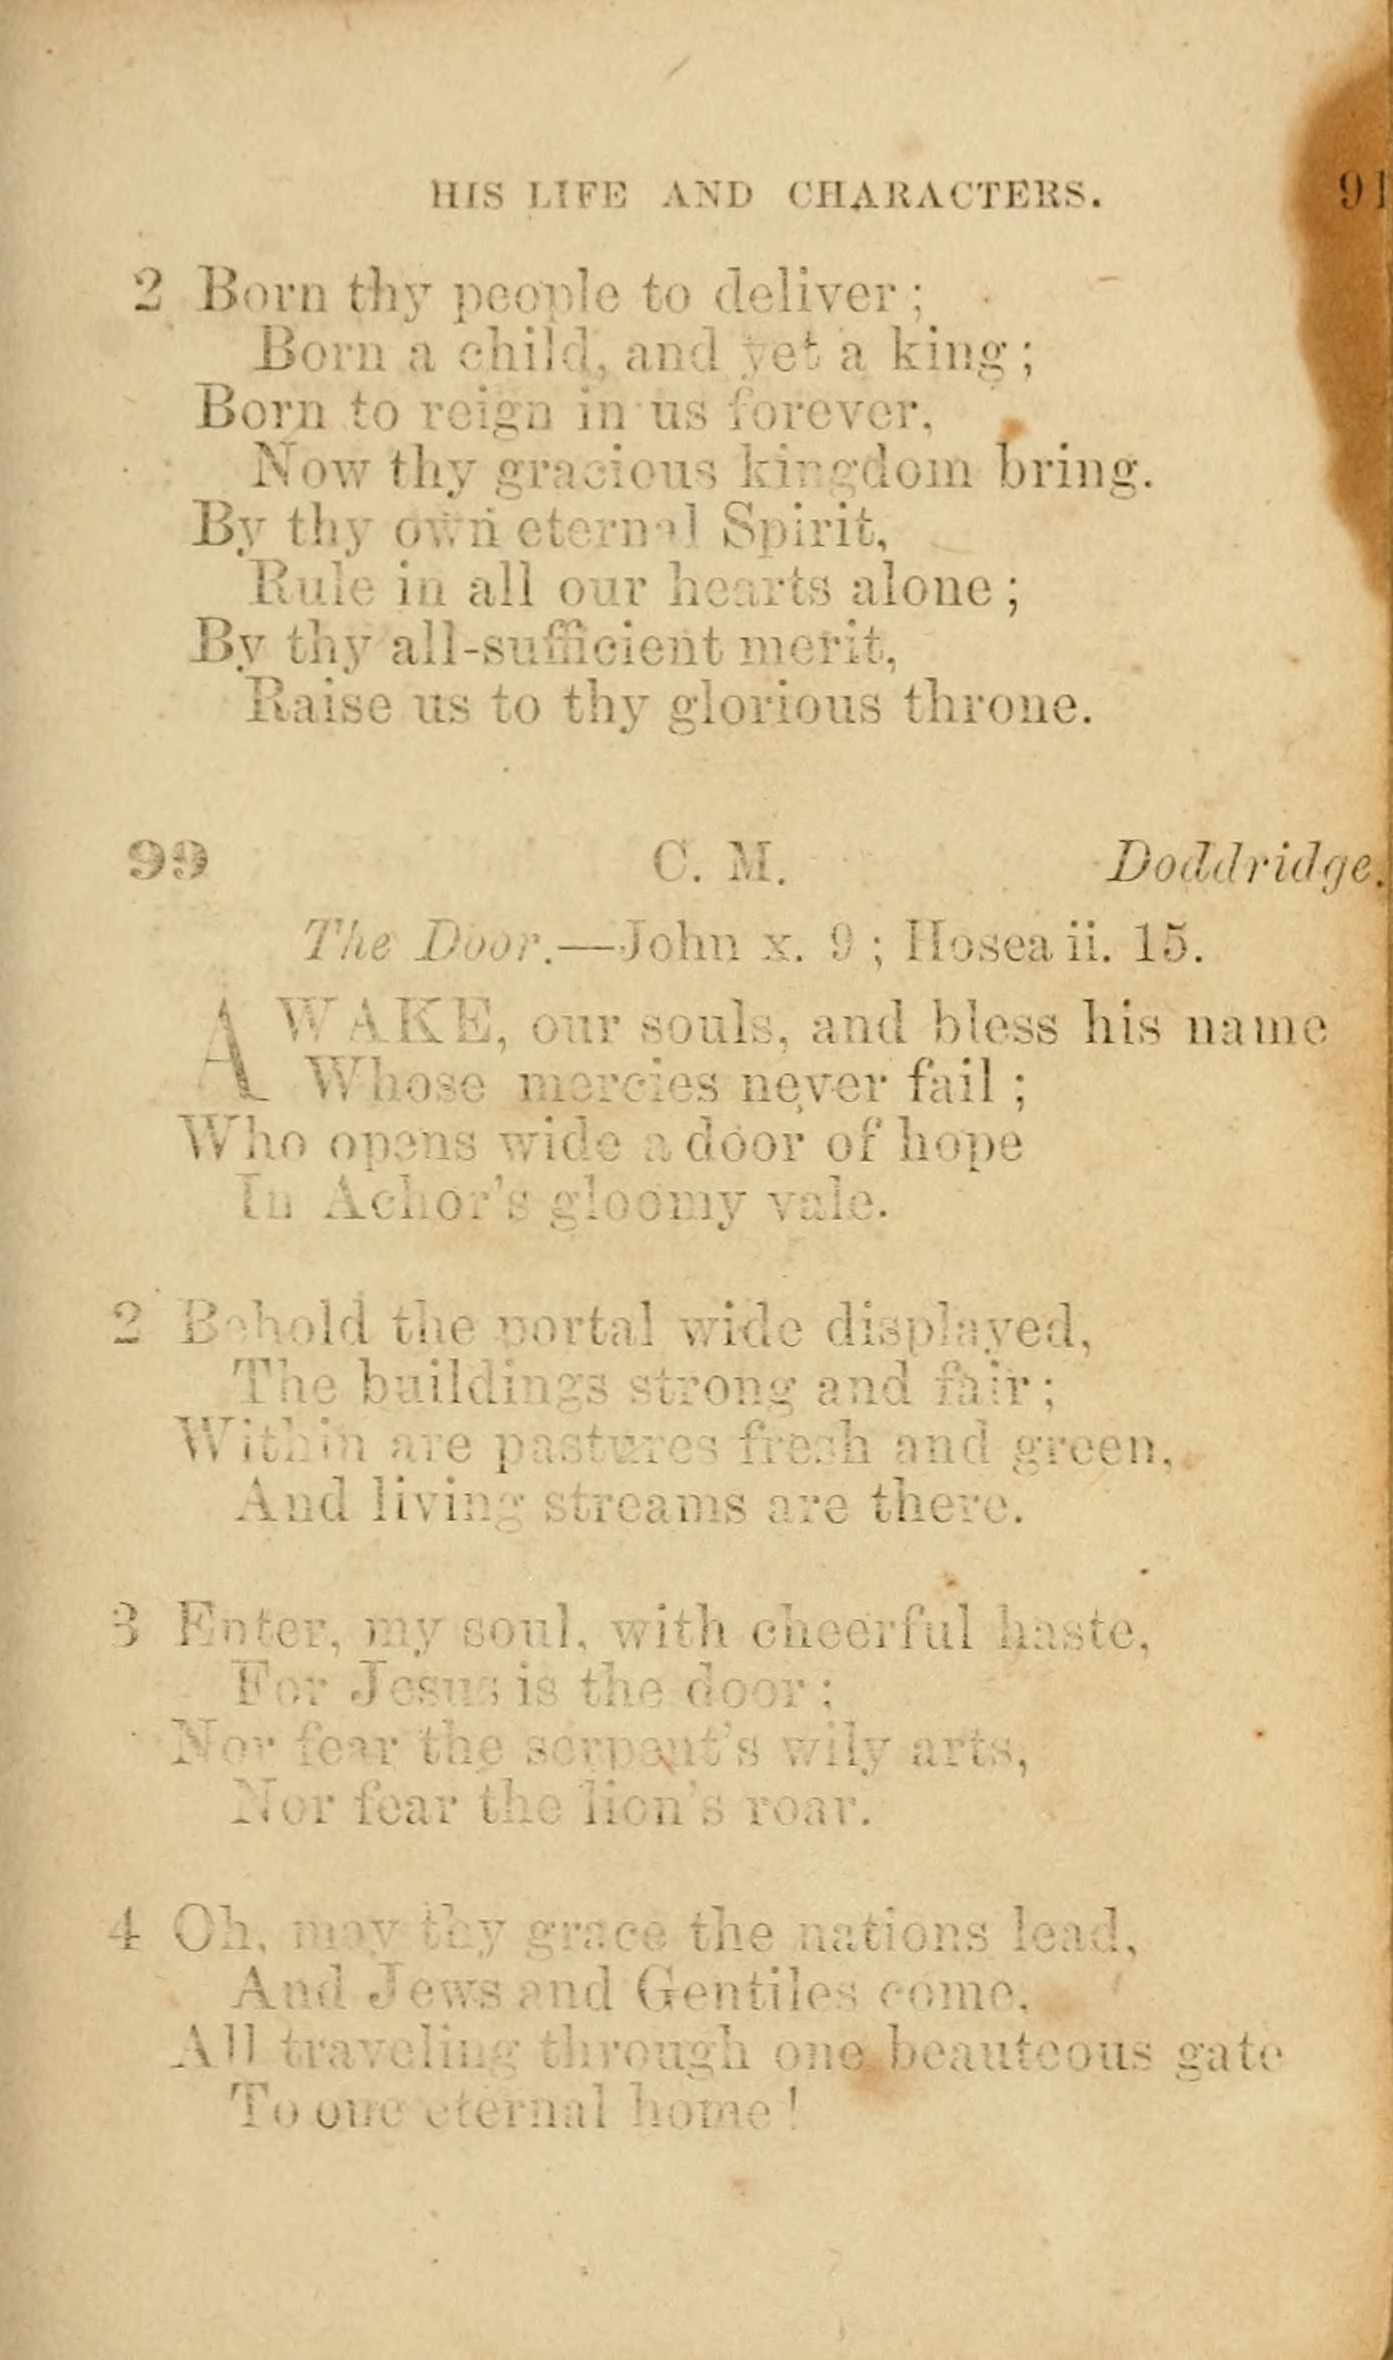 HIS LIFE AND CHARACTERS. 91
2 Born thy people to deliver;
Born a child, and yet a king;
Born to reign in us forever,
Now thy gracious kingdom bring.
By thy own eternal Spirit,
Rule in all our hearts alone;
By thy all-sufficient merit,
Raise us to thy glorious throne.
99 C. M. Doddridge.
The Door.—John x. 9; Hosea ii. 15.
AWAKE, our souls, and bless his name
Whose mercies never fail;
Who opens wide a door of hope
In Achor's gloomy vale.
2 Behold the portal wide displayed,
The buildings strong and fair;
Within are pastures fresh and green,
And living streams are there.
3 Enter, my soul, with cheerful haste,
For Jesus is the door;
Nor fear the serpent's wily arts,
Nor fear the lion's roar.
4 Oh, may thy grace the nations lead,
And Jews and Gentiles come,
All traveling through one beauteous gate
To one eternal home!